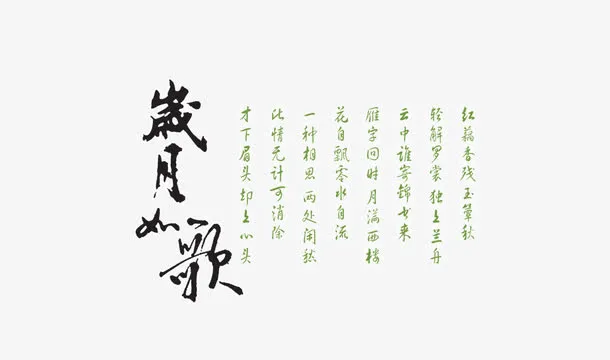 红藕香残玉簟秋
轻解罗裳 独上兰舟
云中谁寄锦书来
雁字回时 月满西楼
花自飘零水自流
一种相思 两处闲愁
此情无计可消除
才下眉头 却上心头
歲月如歌